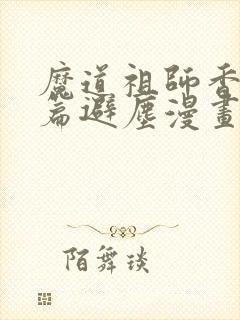 魔道祖師香
篇避塵漫畫
陌舞琰